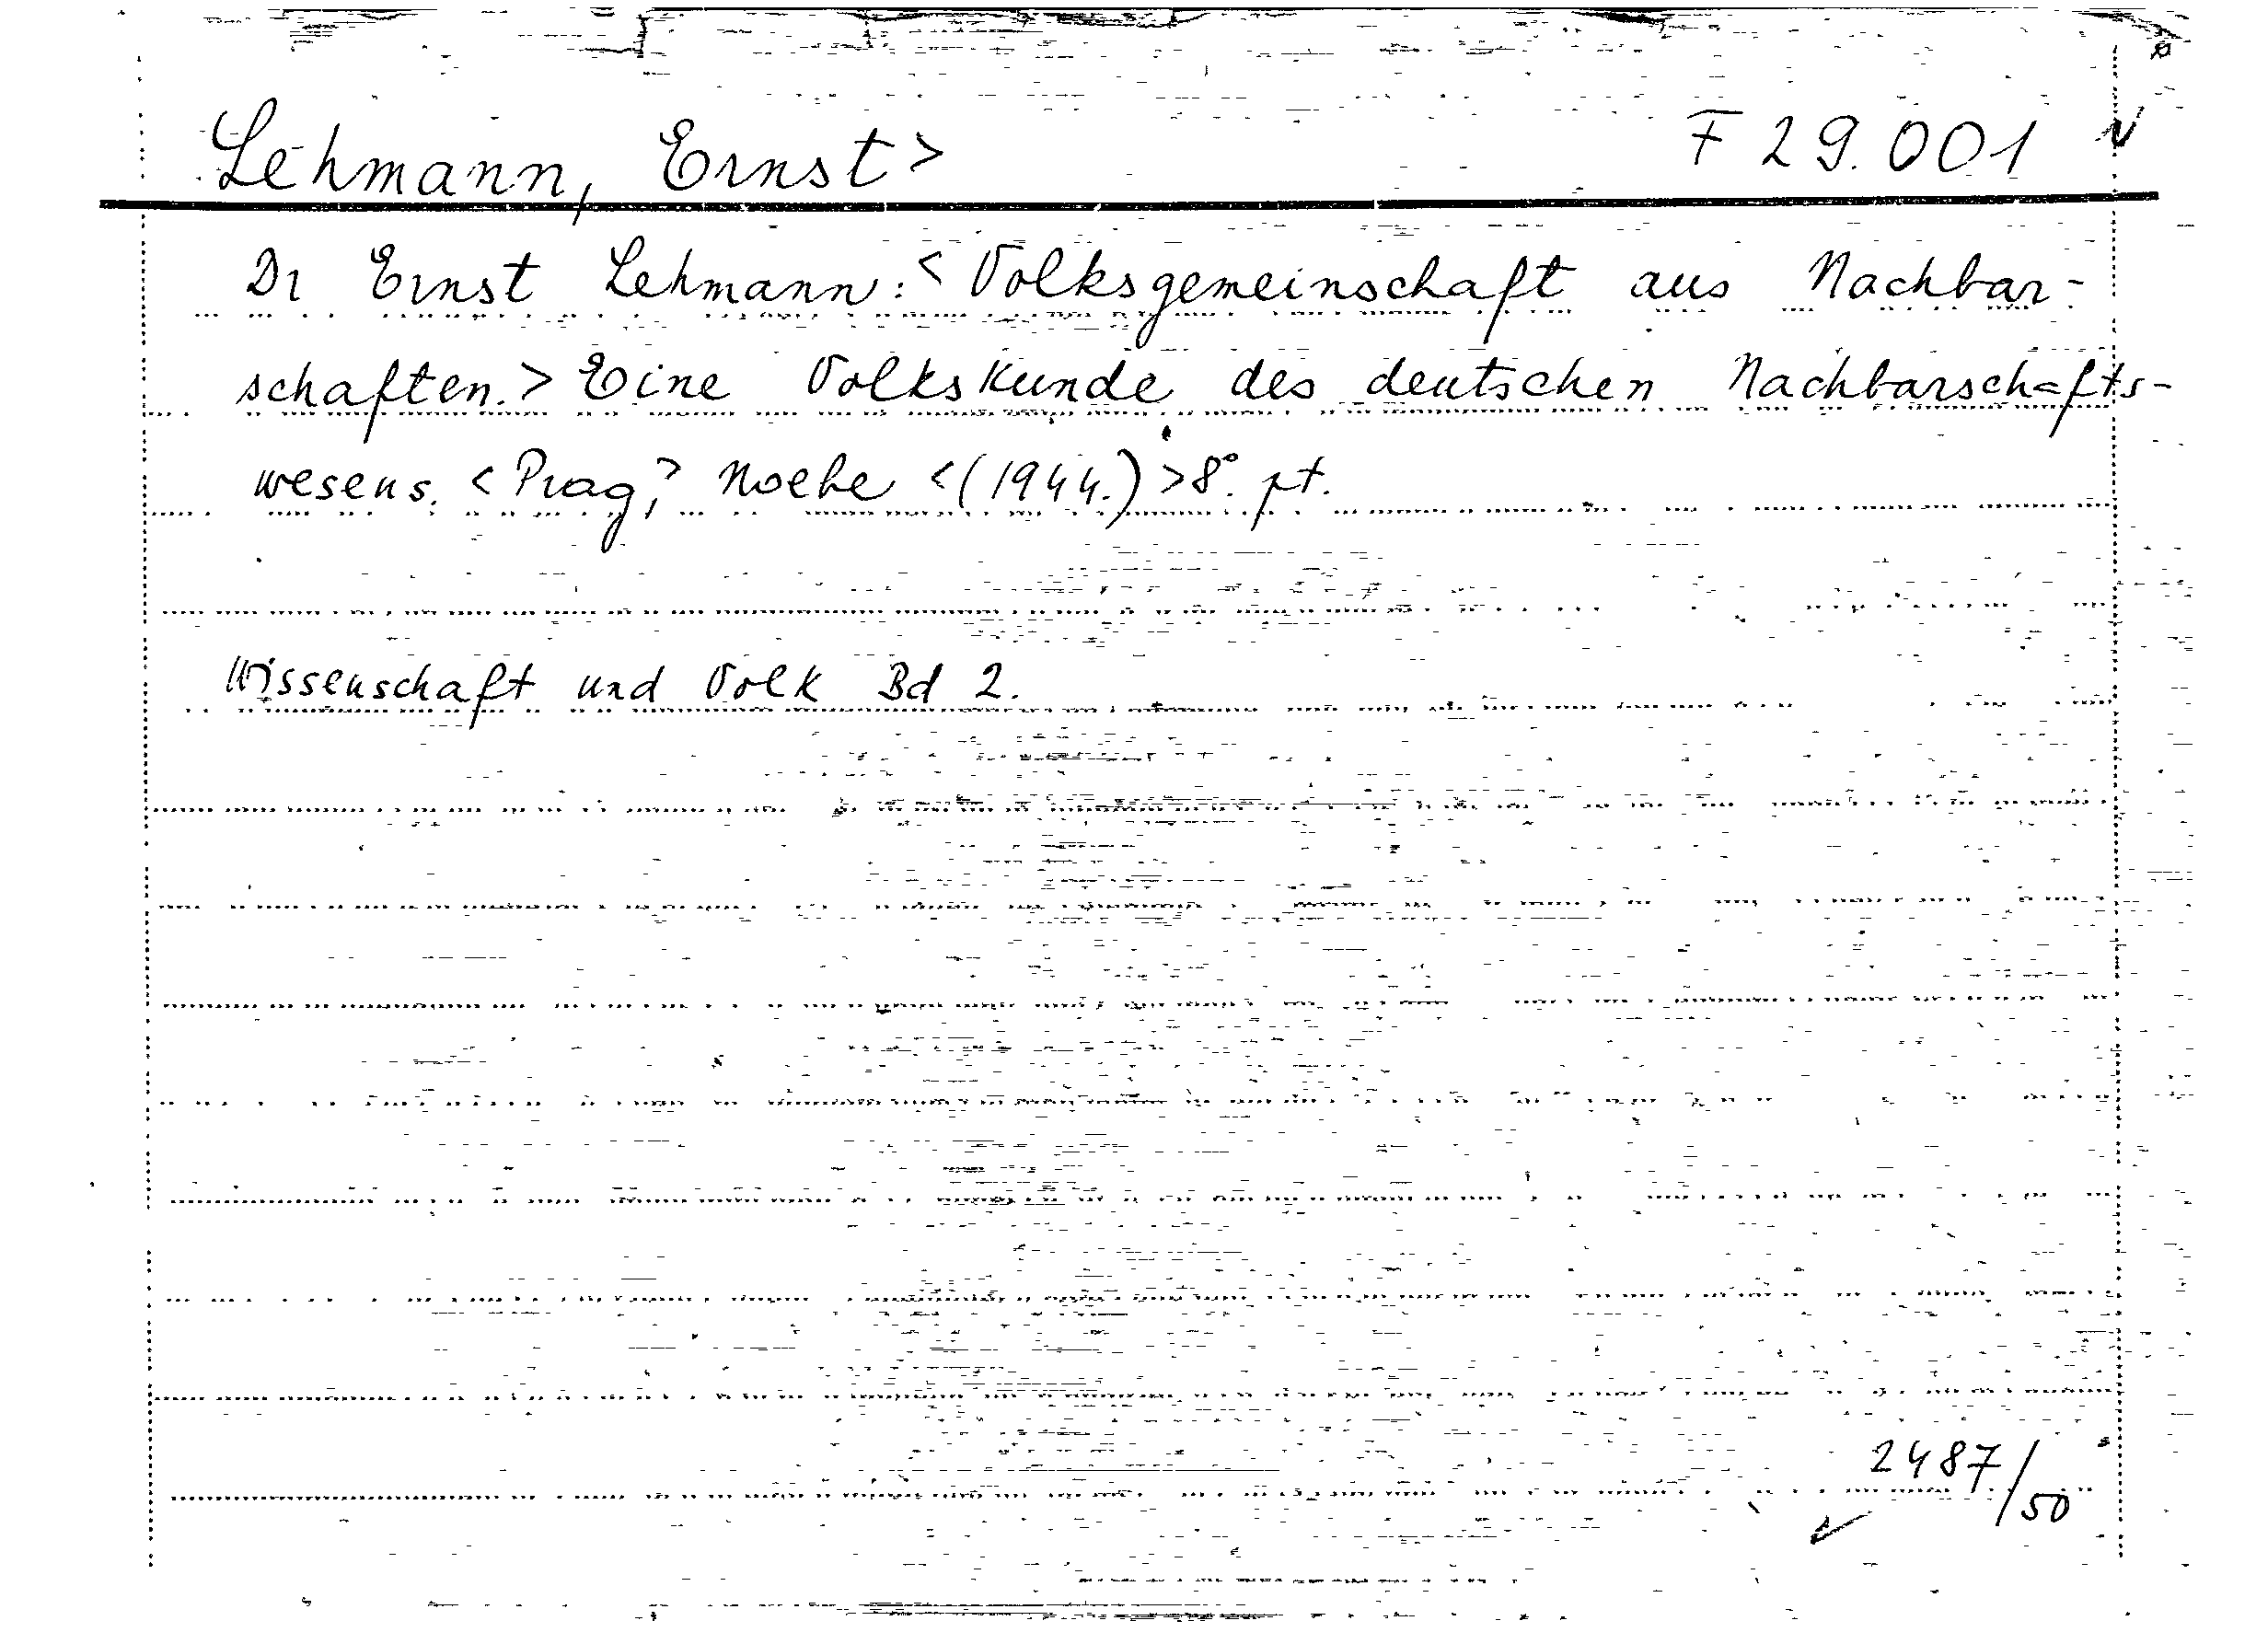 Lehmann, Ernst> F 29.001
Dr Ernst Lehmann: <Volksgemeinschaft aus Nachbar-
schaften.> Eine Volkskunde des deutschen Nachbarschafts-
wesens. <Prag,> Noebe <(1944.)> 8°. pt.
Wissenschaft und Volk Bd 2.
2487/50